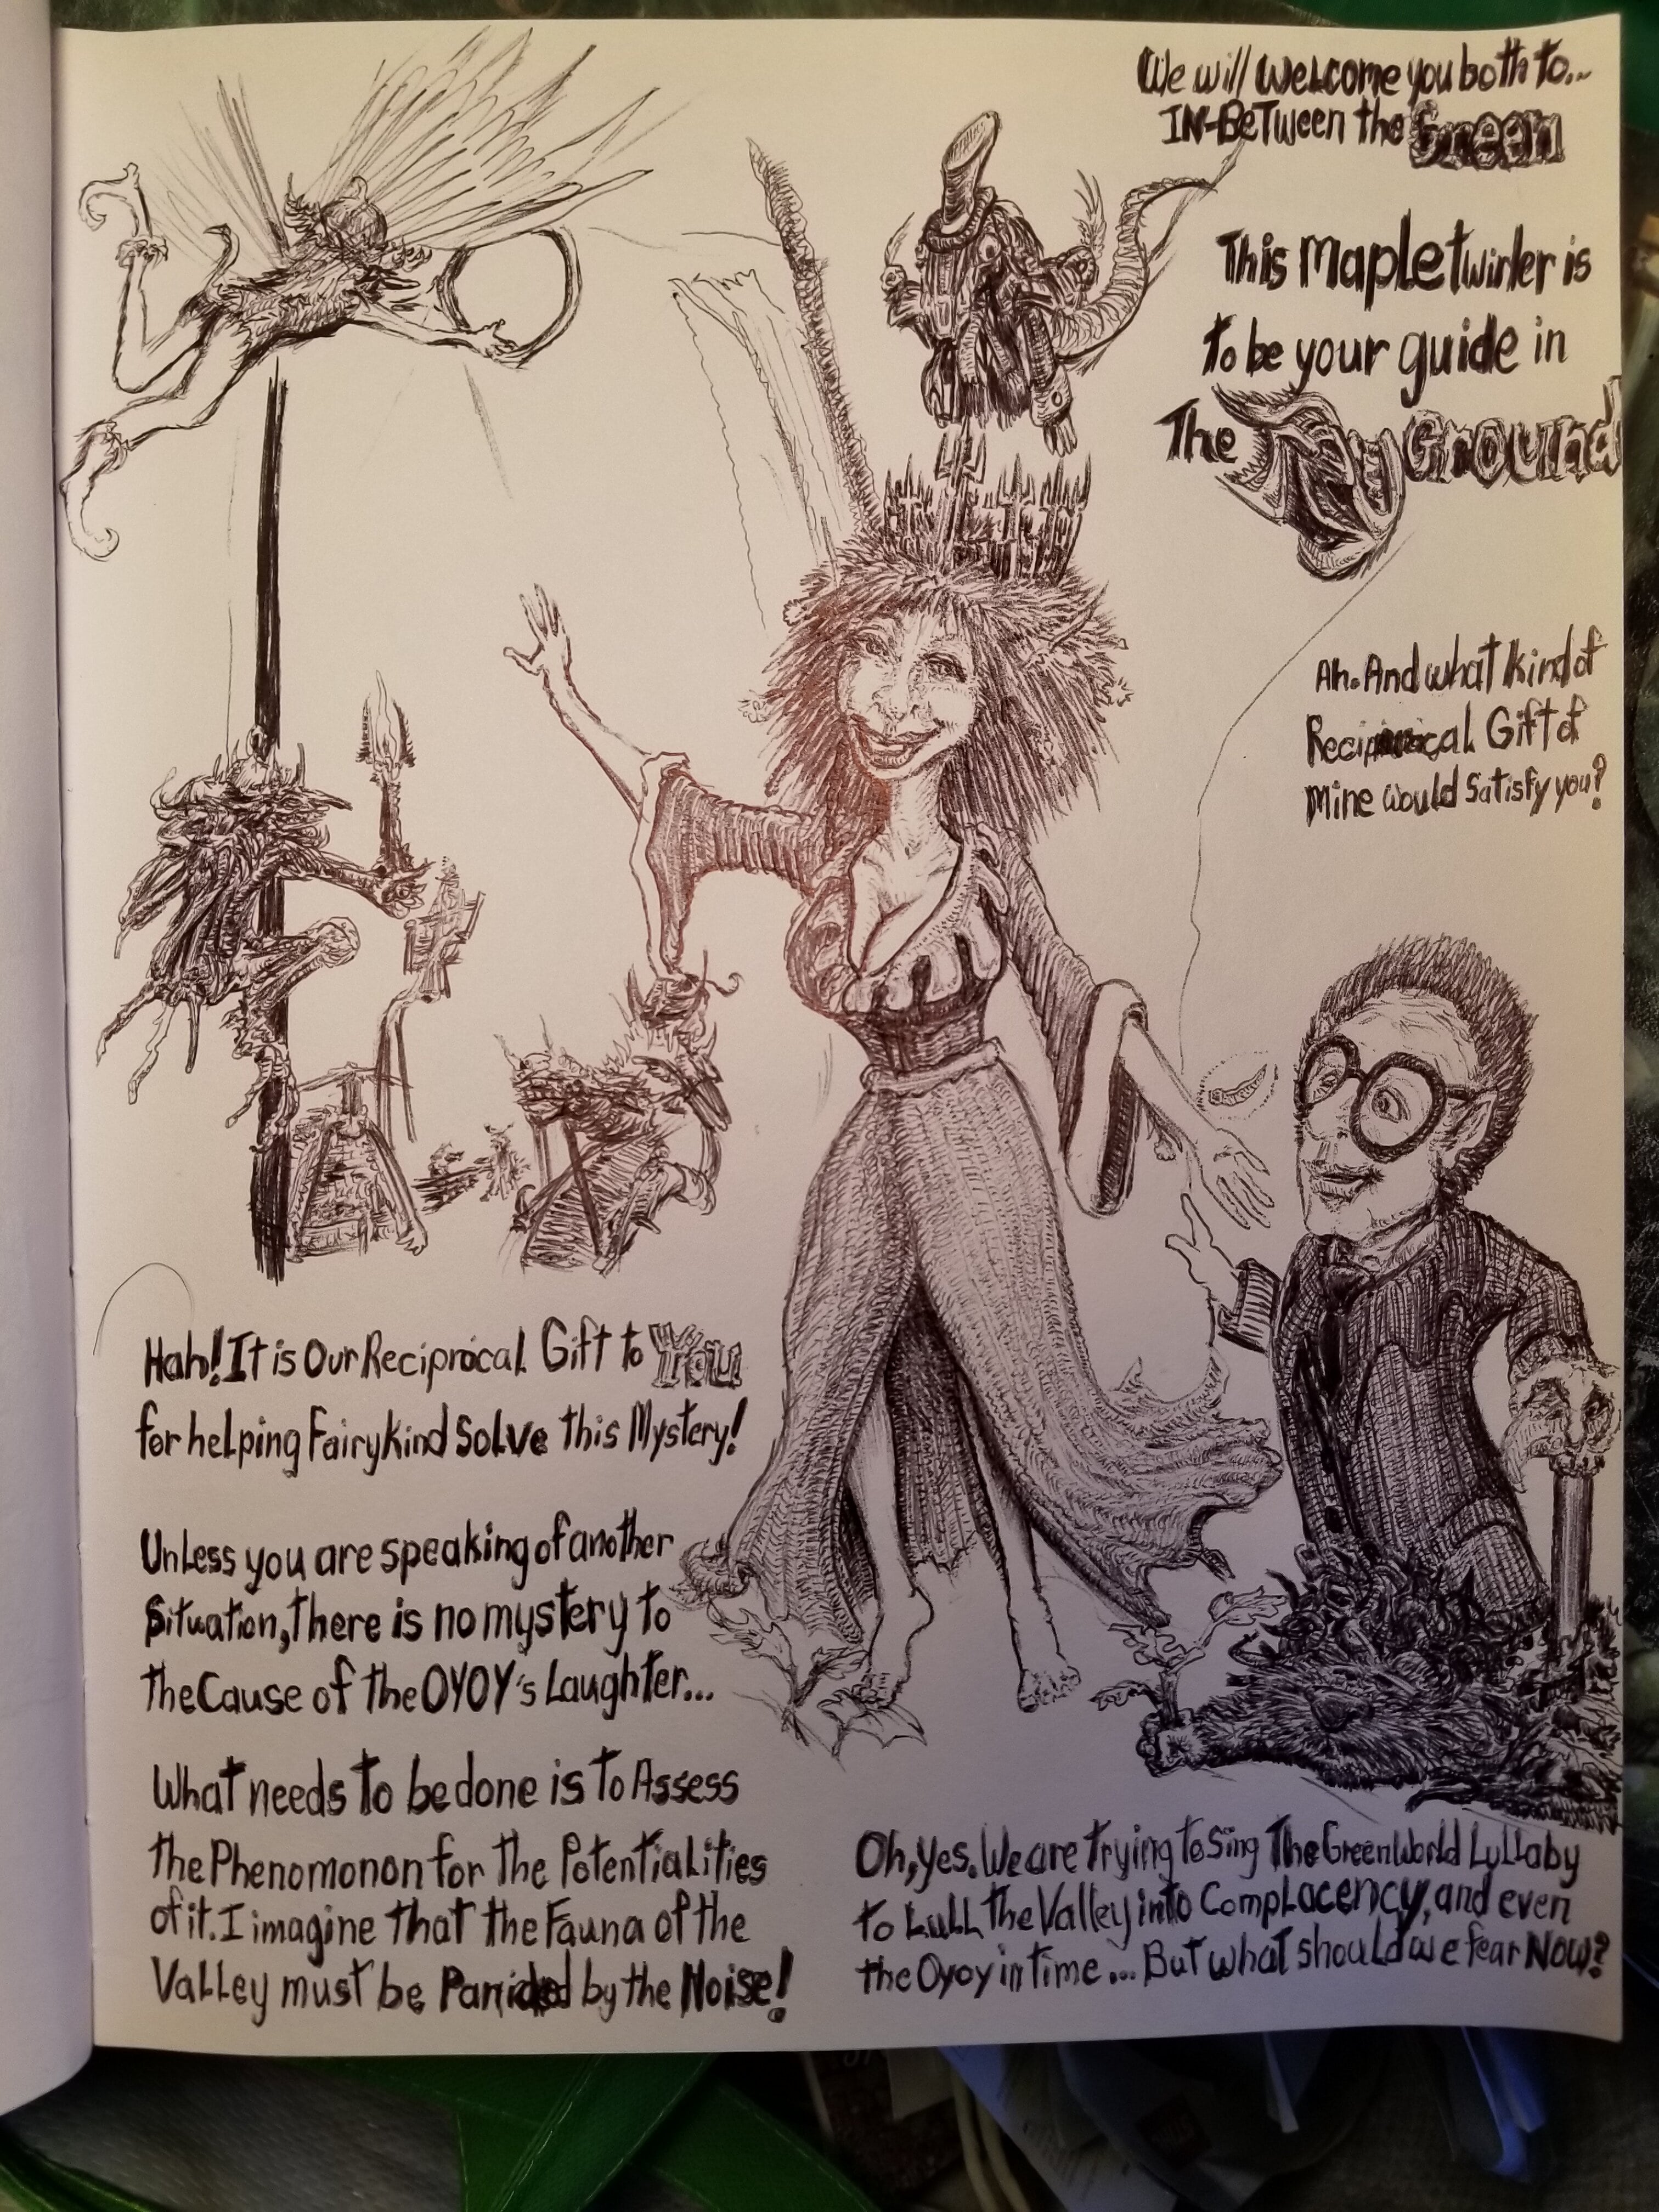 We will Welcome you both to...
IN-BeTween the Green
This Maple twirler is
to be your guide in
The Ground
Ah. And what Kind of
Reciprocal Gift of
Mine would Satisfy you?
Hah! It is Our Reciprocal Gift to You
for helping Fairykind Solve this Mystery!
Unless you are speaking of another
Situation, there is no mystery to
the Cause of the OYOY's Laughter...
What needs to be done is to Assess
the Phenomonon for the Potentialities
of it. I imagine that the Fauna of the
Valley must be by the Noise!
Oh, yes. We are trying to Sing The Green World Lullaby
to Lull the Valley into Complacency, and even
the Oyoy in time... But what should we fear Now?